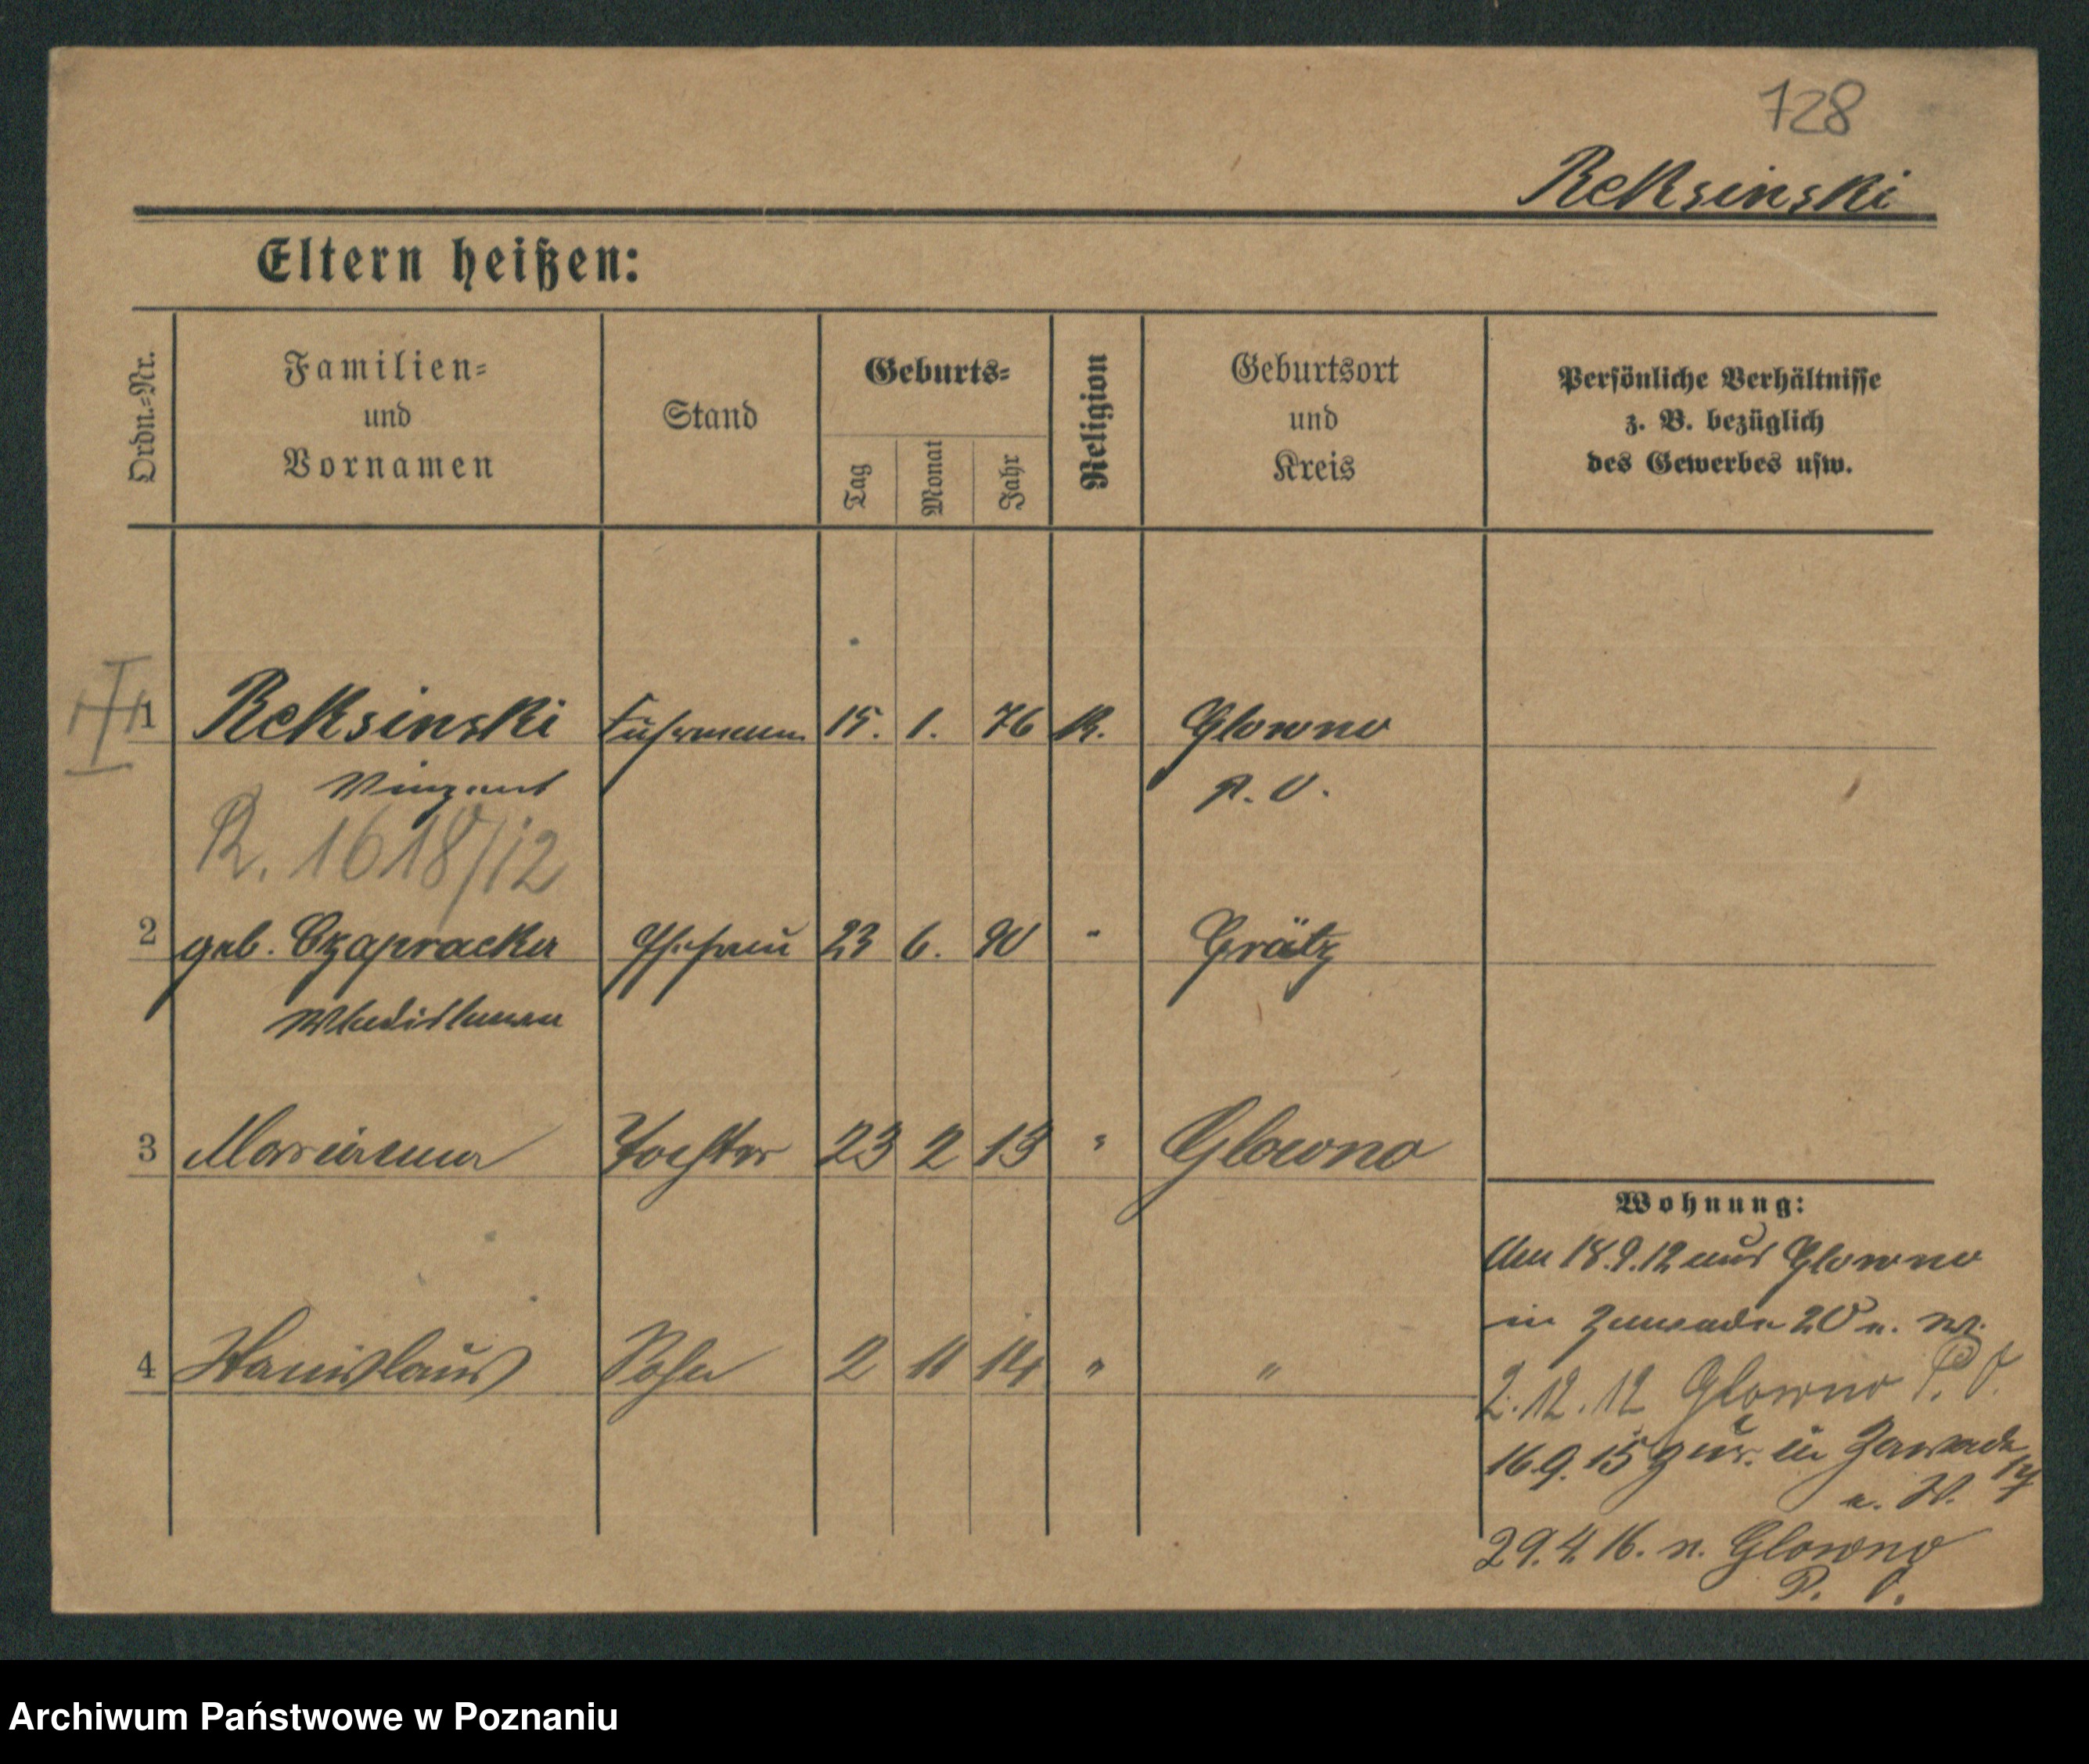 728
Reksinski
Eltern heißen:
Ordn.-Nr.
Familien-
und
Vornamen
Stand
Geburts-
Tag
Monat
Jahr
Religion
Geburtsort
und
Kreis
Persönliche Verhältnisse
z. B. bezüglich
des Gewerbes usw.
1 Reksinski Fuhrmann 15. 1. 76 K. Glowno
Vinzent P. O.
R. 1618/12
2 geb. Czapracka Ehefrau 23 6. 90 " Grätz
Wladislawa
3 Marianna Tochter 23 2 13 " Glowno
Wohnung:
Am 18.9.12 aus Glowno
in Zawade 20 n. W.
4 Stanislaus Sohn 2 11 14 " "
2.12.12 Glowno P. O.
16.9.15 zur. in Zawade 17
n. W.
29.4.16. n. Glowno
P. O.
Archiwum Państwowe w Poznaniu